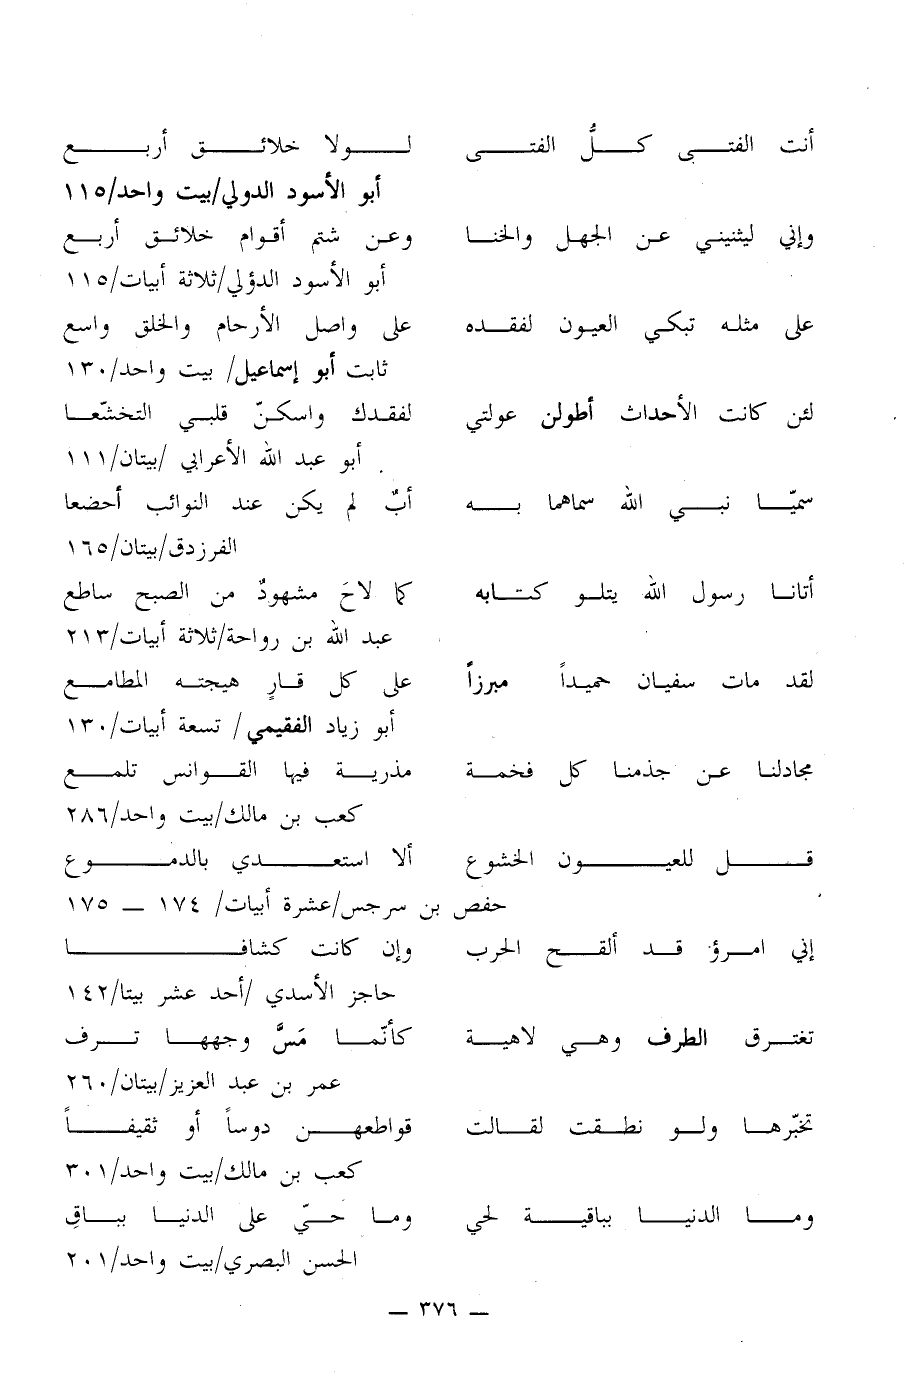 أنت الفتى كلُّ الفتى لولا خلائق أربع
أبو الأسود الدولي/بيت واحد/١١٥
وإني ليثنيني عن الجهل والخنا وعن شتم أقوام خلائق أربع
أبو الأسود الدؤلي/ثلاثة أبيات/١١٥
على مثله تبكي العيون لفقده على واصل الأرحام والخلق واسع
ثابت أبو إسماعيل/ بيت واحد/١٣٠
لئن كانت الأحداث أطولن عولتي لفقدك واسكنّ قلبي التخشّعا
أبو عبد الله الأعرابي /بيتان/١١١
سميّا نبي الله سماهما به أبٌ لم يكن عند النوائب أخضعا
الفرزدق/بيتان/١٦٥
أتانا رسول الله يتلو كتابه كما لاحَ مشهودٌ من الصبح ساطع
عبد الله بن رواحة/ثلاثة أبيات/٢١٣
لقد مات سفيان حميداً مبرزاً على كل قارٍ هيجته المطامع
أبو زياد الفقيمي/ تسعة أبيات/١٣٠
مجادلنا عن جذمنا كل فخمة مذربة فيها القوانس تلمع
كعب بن مالك/بيت واحد/٢٨٦
قل للعيون الخشوع ألا استعدي بالدموع
حفص بن سرجس/عشرة أبيات/ ١٧٤ – ١٧٥
إني امرؤ قد ألقح الحرب وإن كانت كشافا
حاجز الأسدي /أحد عشر بيتا/١٤٢
تغترق الطرف وهي لاهية كأنّما مَسَّ وجهها ترف
عمر بن عبد العزيز/بيتان/٢٦٠
تخبّرها ولو نطقت لقالت قواطعهن دوساً أو ثقيفاً
كعب بن مالك/بيت واحد/٣٠١
وما الدنيا بباقية لحي وما حيّ على الدنيا بباقِ
الحسن البصري/بيت واحد/٢٠١
– ٣٧٦ –